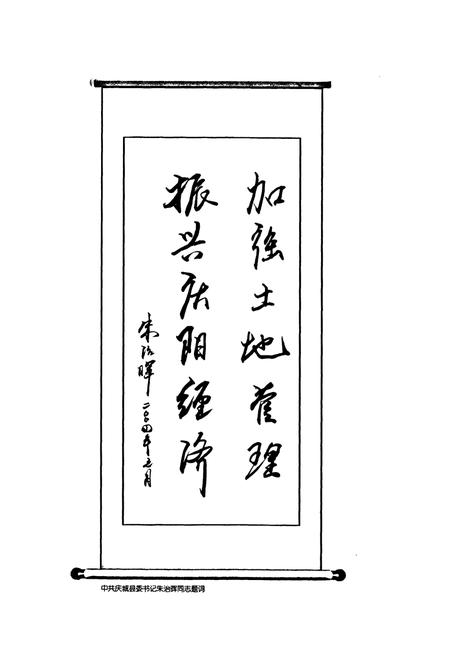 加强土地管理
振兴庆阳经济
朱治晖
二〇〇四年五月
中共庆城县委书记朱治晖同志题词